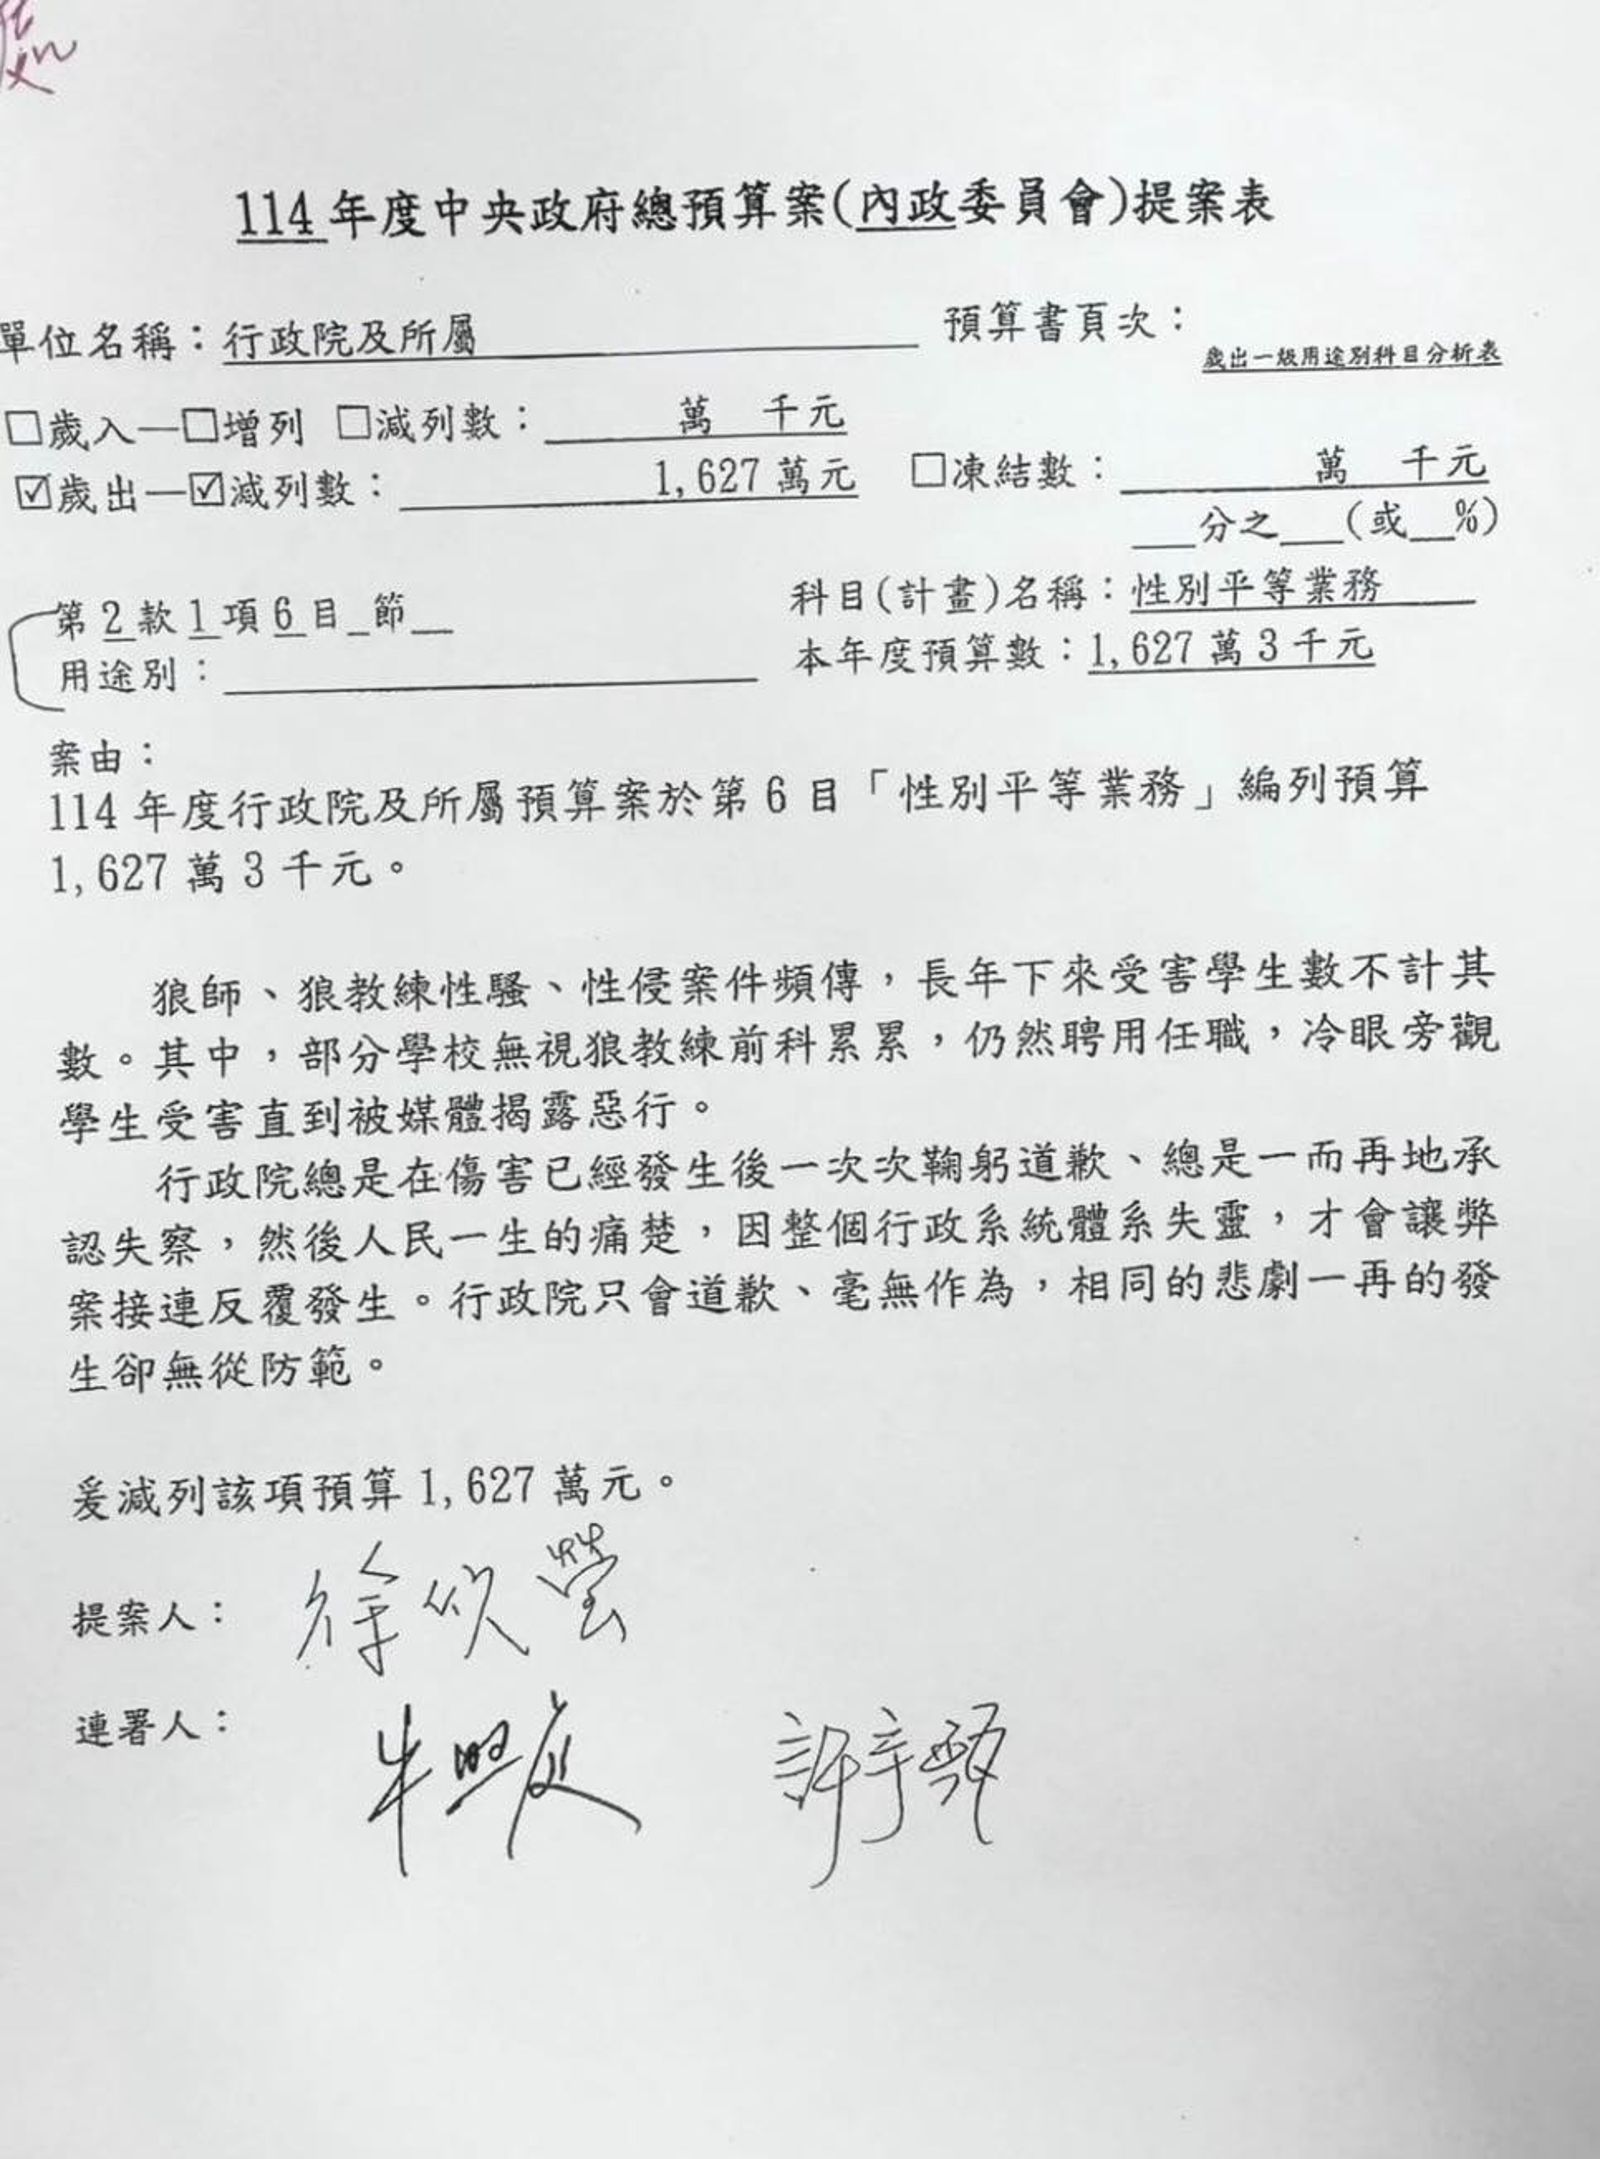 114 年度中央政府總預算案(內政委員會)提案表
單位名稱：行政院及所屬 預算書頁次：
歲出一級用途別科目分析表
□歲入—□增列 □減列數： 萬 千元
☑歲出—☑減列數： 1,627 萬元 □凍結數： 萬 千元
__分之__(或__%)
第 2 款 1 項 6 目 _節__ 科目(計畫)名稱：性別平等業務
用途別： 本年度預算數：1,627 萬 3 千元
案由：
114 年度行政院及所屬預算案於第 6 目「性別平等業務」編列預算
1,627 萬 3 千元。
狼師、狼教練性騷、性侵案件頻傳，長年下來受害學生數不計其
數。其中，部分學校無視狼教練前科累累，仍然聘用任職，冷眼旁觀
學生受害直到被媒體揭露惡行。
行政院總是在傷害已經發生後一次次鞠躬道歉、總是一而再地承
認失察，然後人民一生的痛楚，因整個行政系統體系失靈，才會讓弊
案接連反覆發生。行政院只會道歉、毫無作為，相同的悲劇一再的發
生卻無從防範。
爰減列該項預算 1,627 萬元。
提案人： 徐欣瑩
連署人： 牛煦庭 許宇甄